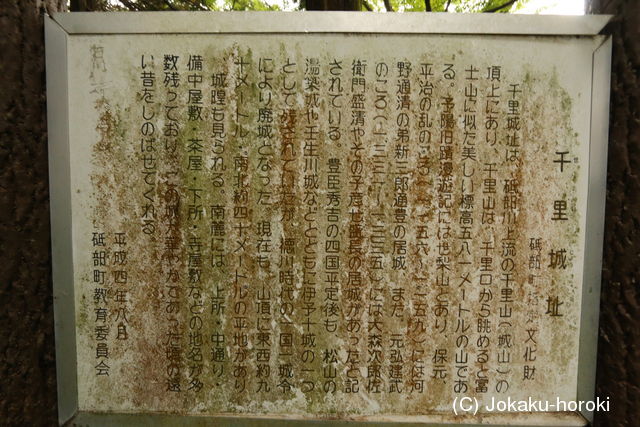 千里城址
砥部町指定文化財
千里城址は、砥部川上流の千里山(城山)の
頂上にあり、千里山は、千里口から眺めると富
士山に似た美しい標高五八一メートルの山であ
る。予陽旧蹟遊記には世梨山とあり、保元、
平治の乱のころ(一一五六〜一一五九)には河
野通清の弟新三郎通豊の居城、また、元弘建武
のころ(一三三一〜一三三五)には大森次郎佐
衛門盛清やその子彦七盛長の居城があったと記
されている。豊臣秀吉の四国平定後も、松山の
湯築城や壬生川城などとともに伊予十城の一つ
として残されていたが、徳川時代の一国一城令
により廃城となった。現在も、山頂に東西約九
十メートル・南北約四十メートルの平地があり
、城隍も見られる。南麓には、上所・中通り・
備中屋敷・茶屋・下所・寺屋敷などの地名が多
数残っており、この城が華やかであった頃の遠
い昔をしのばせてくれる。
平成四年八月
砥部町教育委員会
(C) Jokaku-horoki